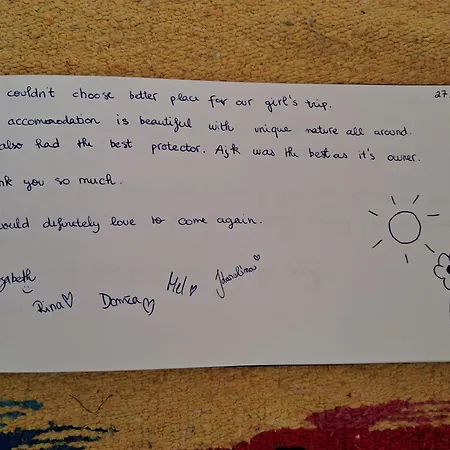 couldn't choose better place for our girl's trip. 27.
accomorodation is beautiful with unique nature all around.
also had the best protector. Ajk was the best as it's owner.
nk you so much.
would definetely love to come again.
zabeth
Rina Domča Mel Karolína